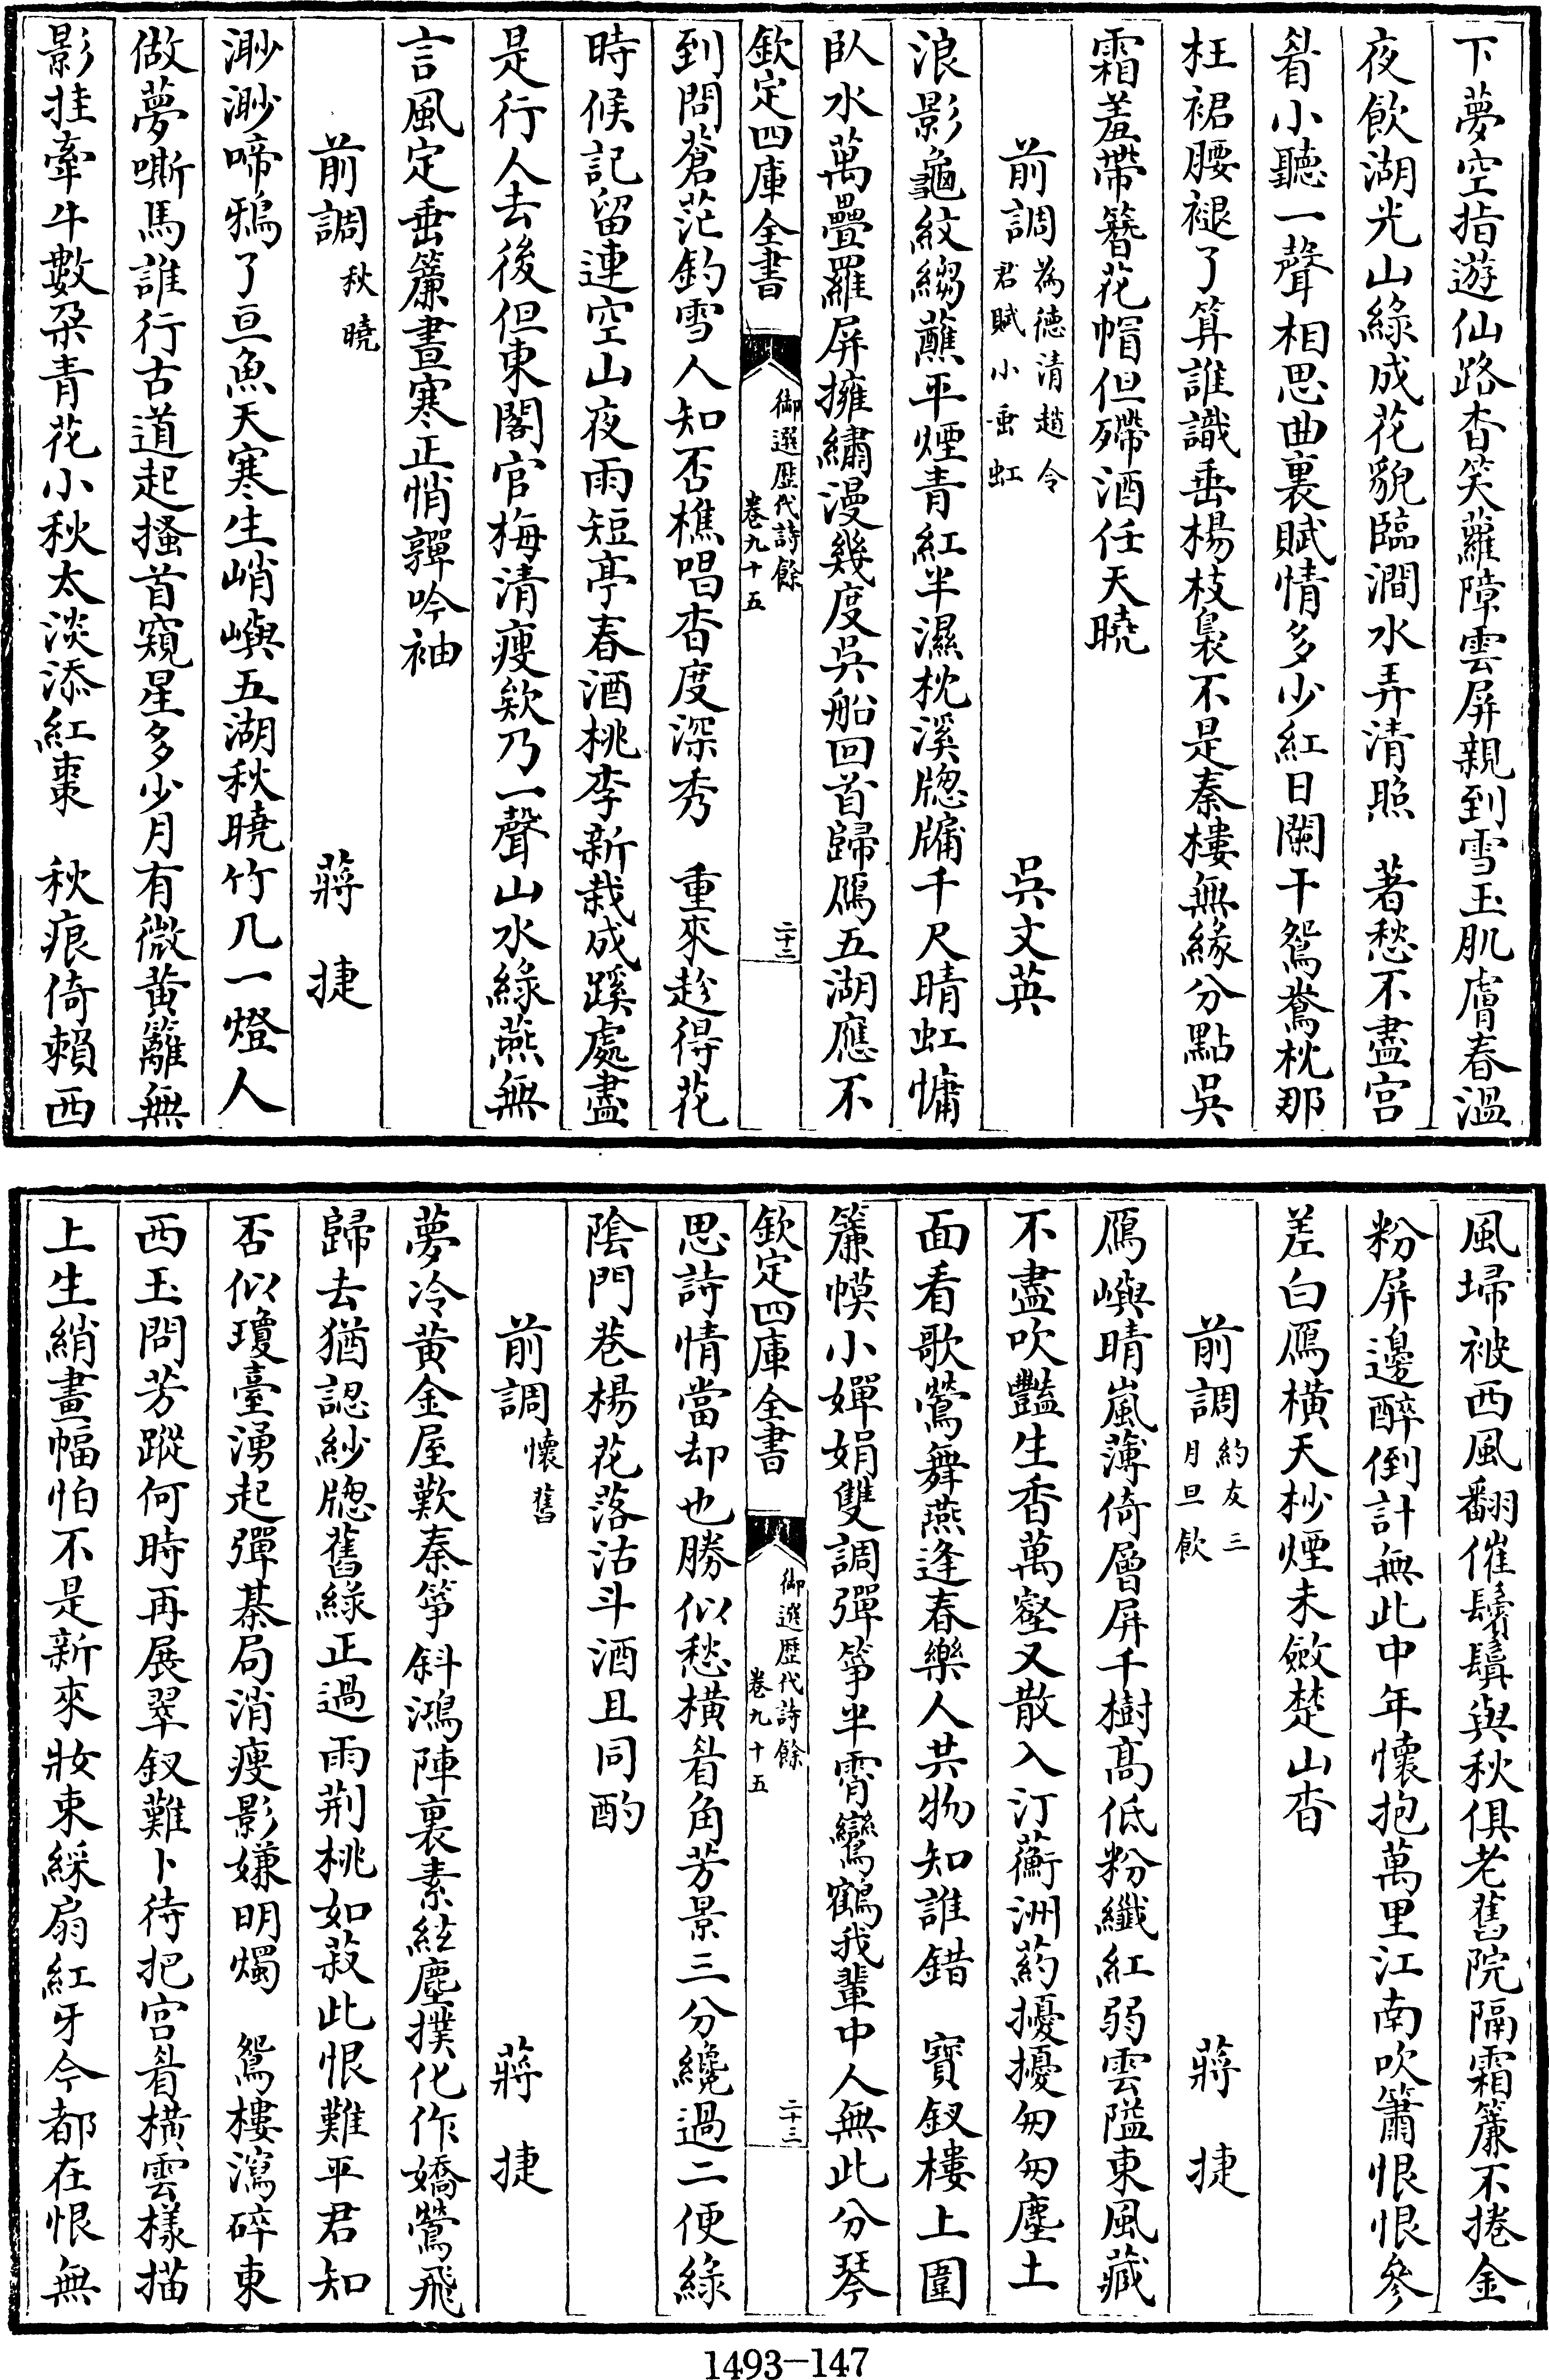 下夢空指遊仙路杳笑蘿障雲屏親到雪玉肌膚春溫
夜飲湖光山綠成花貌臨澗水弄清照　著愁不盡宫
眉小聽一聲相思曲裏賦情多少紅日闌干鴛鴦枕那
枉裙腰褪了算誰識垂楊枝裊不是秦樓無緣分點吳
霜羞帶簪花帽但殢酒任天曉
前調
為德清趙令
君賦小垂虹
吳文英
浪影龜紋縐蘸平煙青紅半濕枕溪牕牖千尺晴虹慵
臥水萬疊羅屏擁繡漫幾度吳船回首歸鴈五湖應不
欽定四庫全書
御選歴代詩餘
卷九十五
二十二
到問蒼茫釣雪人知否樵唱杳度深秀　重來趁得花
時候記留連空山夜雨短亭春酒桃李新栽成蹊處盡
是行人去後但東閣官梅清瘦欵乃一聲山水綠燕無
言風定垂簾晝寒正悄嚲吟袖
前調
秋曉
蔣捷
渺渺啼鴉了亘魚天寒生峭嶼五湖秋曉竹几一燈人
做夢嘶馬誰行古道起搔首窺星多少月有微黄籬無
影挂牽牛數朶青花小秋太淡添紅棗　秋痕倚賴西
風埽被西風翻催鬢鬒與秋俱老舊院隔霜簾不捲金
粉屏邊醉倒計無此中年懷抱萬里江南吹簫恨恨參
差白鴈橫天杪煙未斂楚山杳
前調
約友三
月旦飲
蔣捷
鴈嶼晴嵐薄倚層屏千樹髙低粉纖紅弱雲隘東風藏
不盡吹豔生香萬壑又散入汀蘅洲葯擾擾匆匆塵土
面看歌鶯舞燕逢春樂人共物知誰錯　寳釵樓上圍
簾幙小嬋娟雙調彈箏半霄鸞鶴我輩中人無此分琴
欽定四庫全書
御選歴代詩餘
卷九十五
二十三
思詩情當却也勝似愁橫眉角芳景三分纔過二便綠
陰門巷楊花落沽斗酒且同酌
前調
懷舊
蔣捷
夢冷黄金屋歎秦箏斜鴻陣裏素絃塵撲化作嬌鶯飛
歸去猶認紗牕舊綠正過雨荆桃如菽此恨難平君知
否似瓊臺湧起彈棊局消瘦影嫌明燭　鴛樓瀉碎東
西玉問芳蹤何時再展翠釵難卜待把宫眉橫雲樣描
上生綃畫幅怕不是新來妝束綵扇紅牙今都在恨無
1493—147